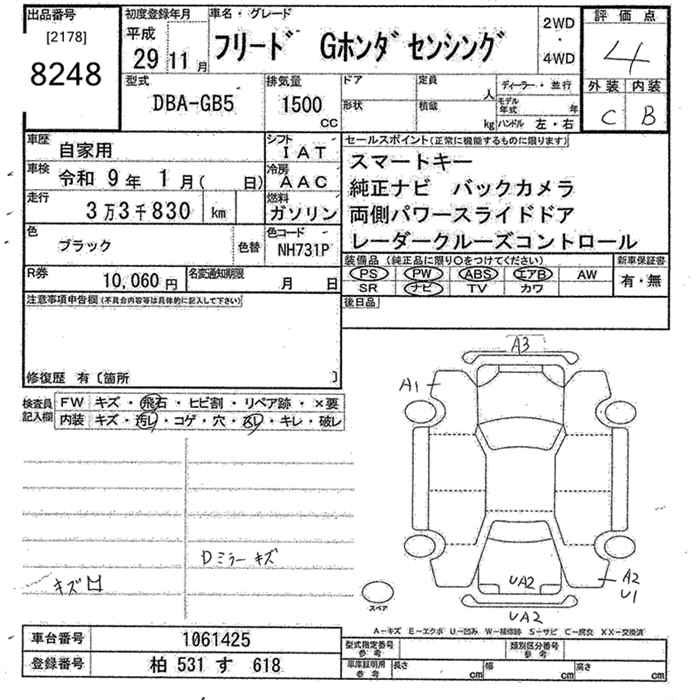 出品番号
[2178]
8248
初度登録年月
平成
29 11 月
車名・グレード
フリード Gホンダセンシング
2WD
・
4WD
評価点
4
外装 内装
C B
型式
DBA-GB5
排気量
1500
CC
ドア
定員
人
形状
積載
kg
ディーラー・並行
モデル年式 年
ハンドル 左・右
車歴
自家用
シフト
IAT
車検
令和 9年 1月( 日)
冷房
AAC
走行
3万3千830 km
燃料
ガソリン
色
ブラック
色替
色コード
NH731P
R券
10,060 円
名変通知期限
月 日
セールスポイント(正常に機能するものに限ります)
スマートキー
純正ナビ バックカメラ
両側パワースライドドア
レーダークルーズコントロール
装備品(純正品に限り○をつけてください)
PS PW ABS エアB AW
SR ナビ TV カワ
新車保証書
有・無
後日品
注意事項申告欄(不具合内容等は具体的に記入して下さい)
修復歴 有〔箇所 〕
検査員記入欄
FW キズ・飛石・ヒビ割・リペア跡・×要
内装 キズ・汚レ・コゲ・穴・凹レ・キレ・破レ
Dミラーキズ
キズ凹
A3
A1
UA2
A2
U1
UA2
スペア
A-キズ E-エクボ U-凹み W-補修跡 S-サビ C-腐食 XX-交換済
車台番号
1061425
登録番号
柏 531 す 618
型式指定番号
参考
類別区分番号
参考
車庫証明用
参考
長さ cm
幅 cm
高さ cm